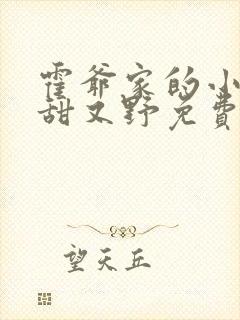 霍爷家的小
甜又野免费
望天丘